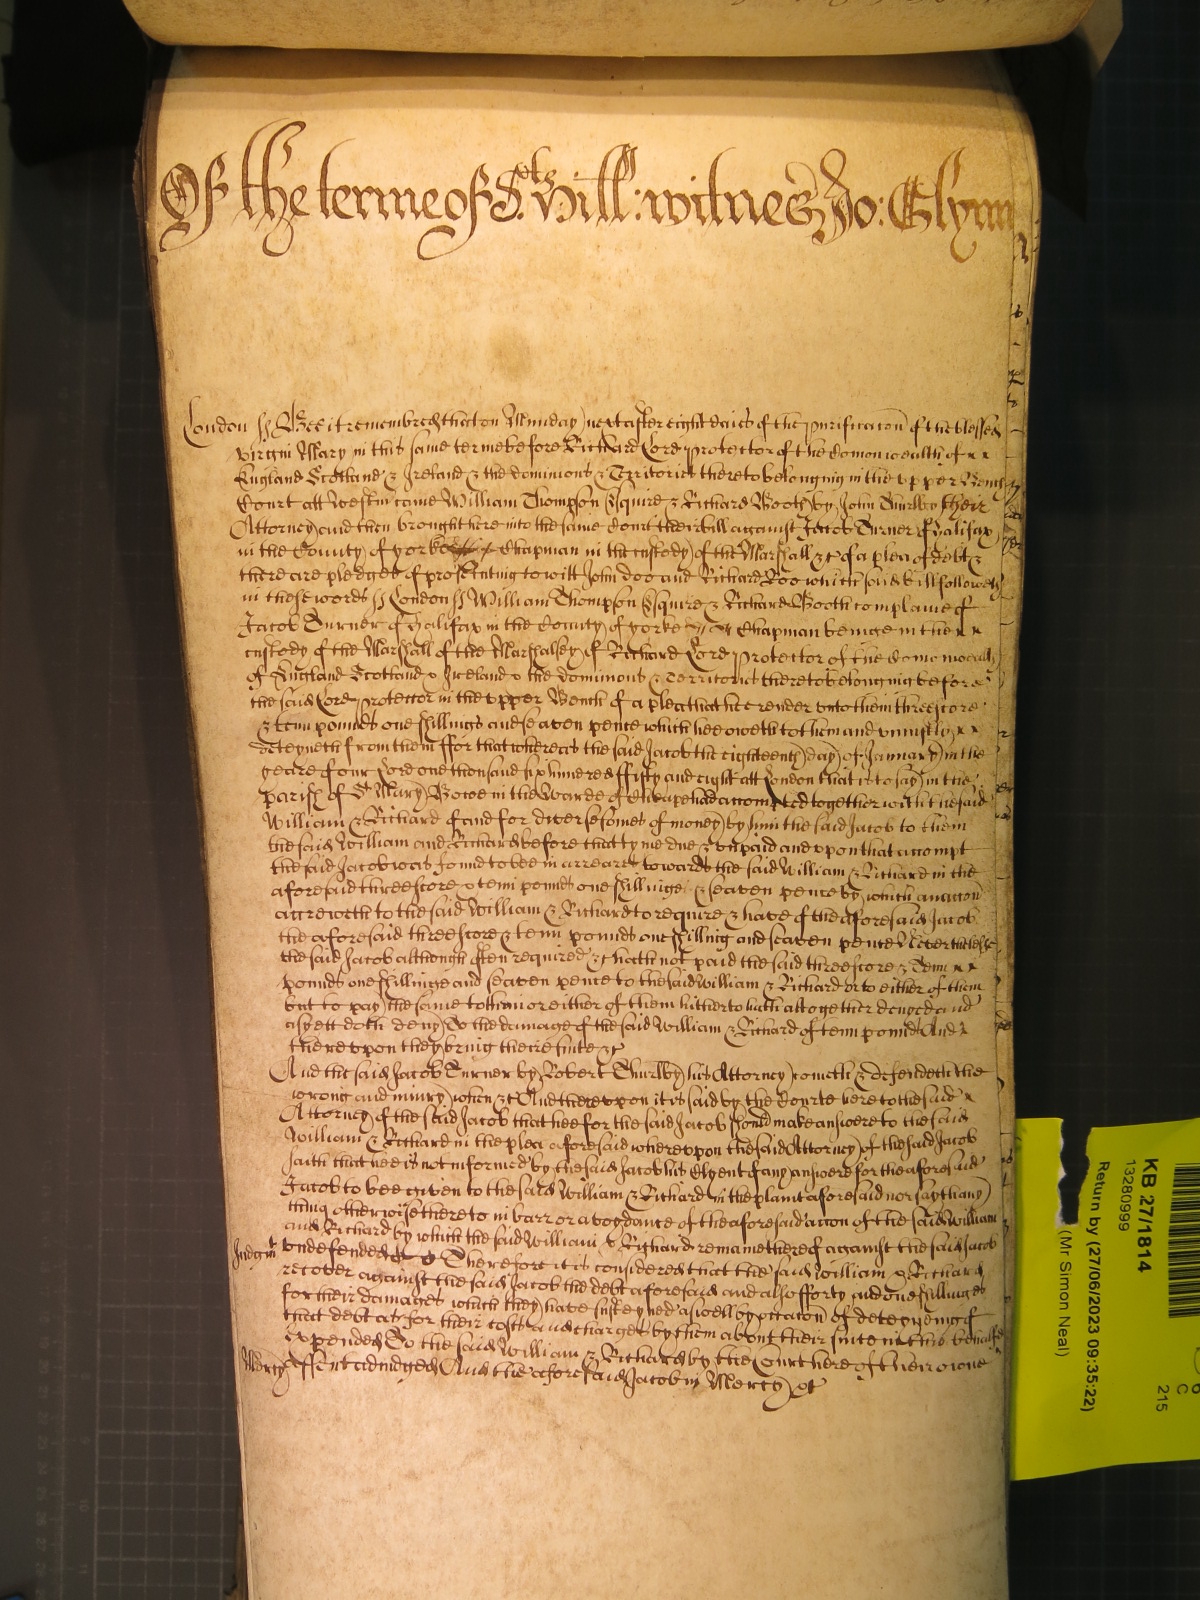 Of the terme of St. Hill: witnes Jo: Glynn
London ss Bee it remembred that on Munday next after eight daies of the purificacon of the blessed
virgin Mary in this same terme before Richard Lord protector of the Comonwealth of
England Scotland & Ireland & the dominions & Territories thereto belonging in the vpper Bench
Court att Westm came William Thompson Esquire & Richard Booth by John Thurlby their
Attorney and then brought here into the same Court their bill against Jacob Turner of Halifax
in the County of yorke Chapman in the custody of the Marshall &c of a plea of debt &
there are pledges of prosecuting to witt John Doo and Richard Roo which said bill followeth
in these words ss London ss William Thompson Esquire & Richard Booth complaine of
Jacob Turner of Halifax in the County of yorke Chapman beinge in the
custody of the Marshall of the Marshalsey of Richard Lord Protector of the Comonwealth
of England Scotland & Ireland & the dominions & Territories thereto belonging before
the said Lord Protector in the vpper Bench of a plea that he render vnto them threescore
& tenn pounds one shillinge and seaven pence which hee oweth to them and vniustly
deteyneth from them ffor that whereas the said Jacob the eighteenth day of January in the
yeare of our Lord one thousand six hundred fifty and eight att London that is to say in the
parish of St Mary Bowe in the Warde of Cheape had accompted together with the said
William & Richard of and for diverse somes of money by him the said Jacob to them
the said William and Richard before that tyme due & vnpaid and vpon that accompt
the said Jacob was found to bee in arreares towards the said William & Richard in the
aforesaid threescore & tenn pounds one shillinge & seaven pence by which an accon
accreweth to the said William & Richard to require & have of the aforesaid Jacob
the aforesaid threescore & tenn pounds one shilling and seaven pence Neverthelesse
the said Jacob although often required &c hath not paid the said threescore & Tenn
pounds one shillinge and seaven pence to the said William & Richard or to either of them
but to pay the same to them or either of them hitherto hath altogether denyed and
as yett doth deny To the damage of the said William & Richard of tenn pounds And
therevpon they bring there suite &c
And the said Jacob Turner by Robert Thurlby his Attorney cometh & defendeth the
wrong and iniury when &c And therevpon it is said by the Courte here to the said
Attorney of the said Jacob that hee for the said Jacob should make answere to the said
William & Richard in the plea aforesaid wherevpon the said Attorney of the said Jacob
saith that hee is not informed by the said Jacob his Clyent of any answere for the aforesaid
Jacob to bee given to the said William & Richard in the plaint aforesaid nor say thany
thing otherwise thereto in barr or avoydance of the aforesaid accon of the said William
and Richard by which the said William & Richard remaine thereof against the said Jacob
Iudgmt vndefended &c Therefore it is considered that the said William & Richard
recover against the said Jacob the debt aforesaid and also fforty and one shillinges
for their damages which they have susteyned aswell by occacon of deteyneing of
that debt as for their costs and charges by them about their suite in this behalfe
expended To the said William & Richard by the Court here of their owne
Mercy assent adiudged And the aforesaid Jacob in Mercy &c
KB 27/1814
13280999
Return by (27/06/2023 09:35:22)
(Mr Simon Neal)
C
215